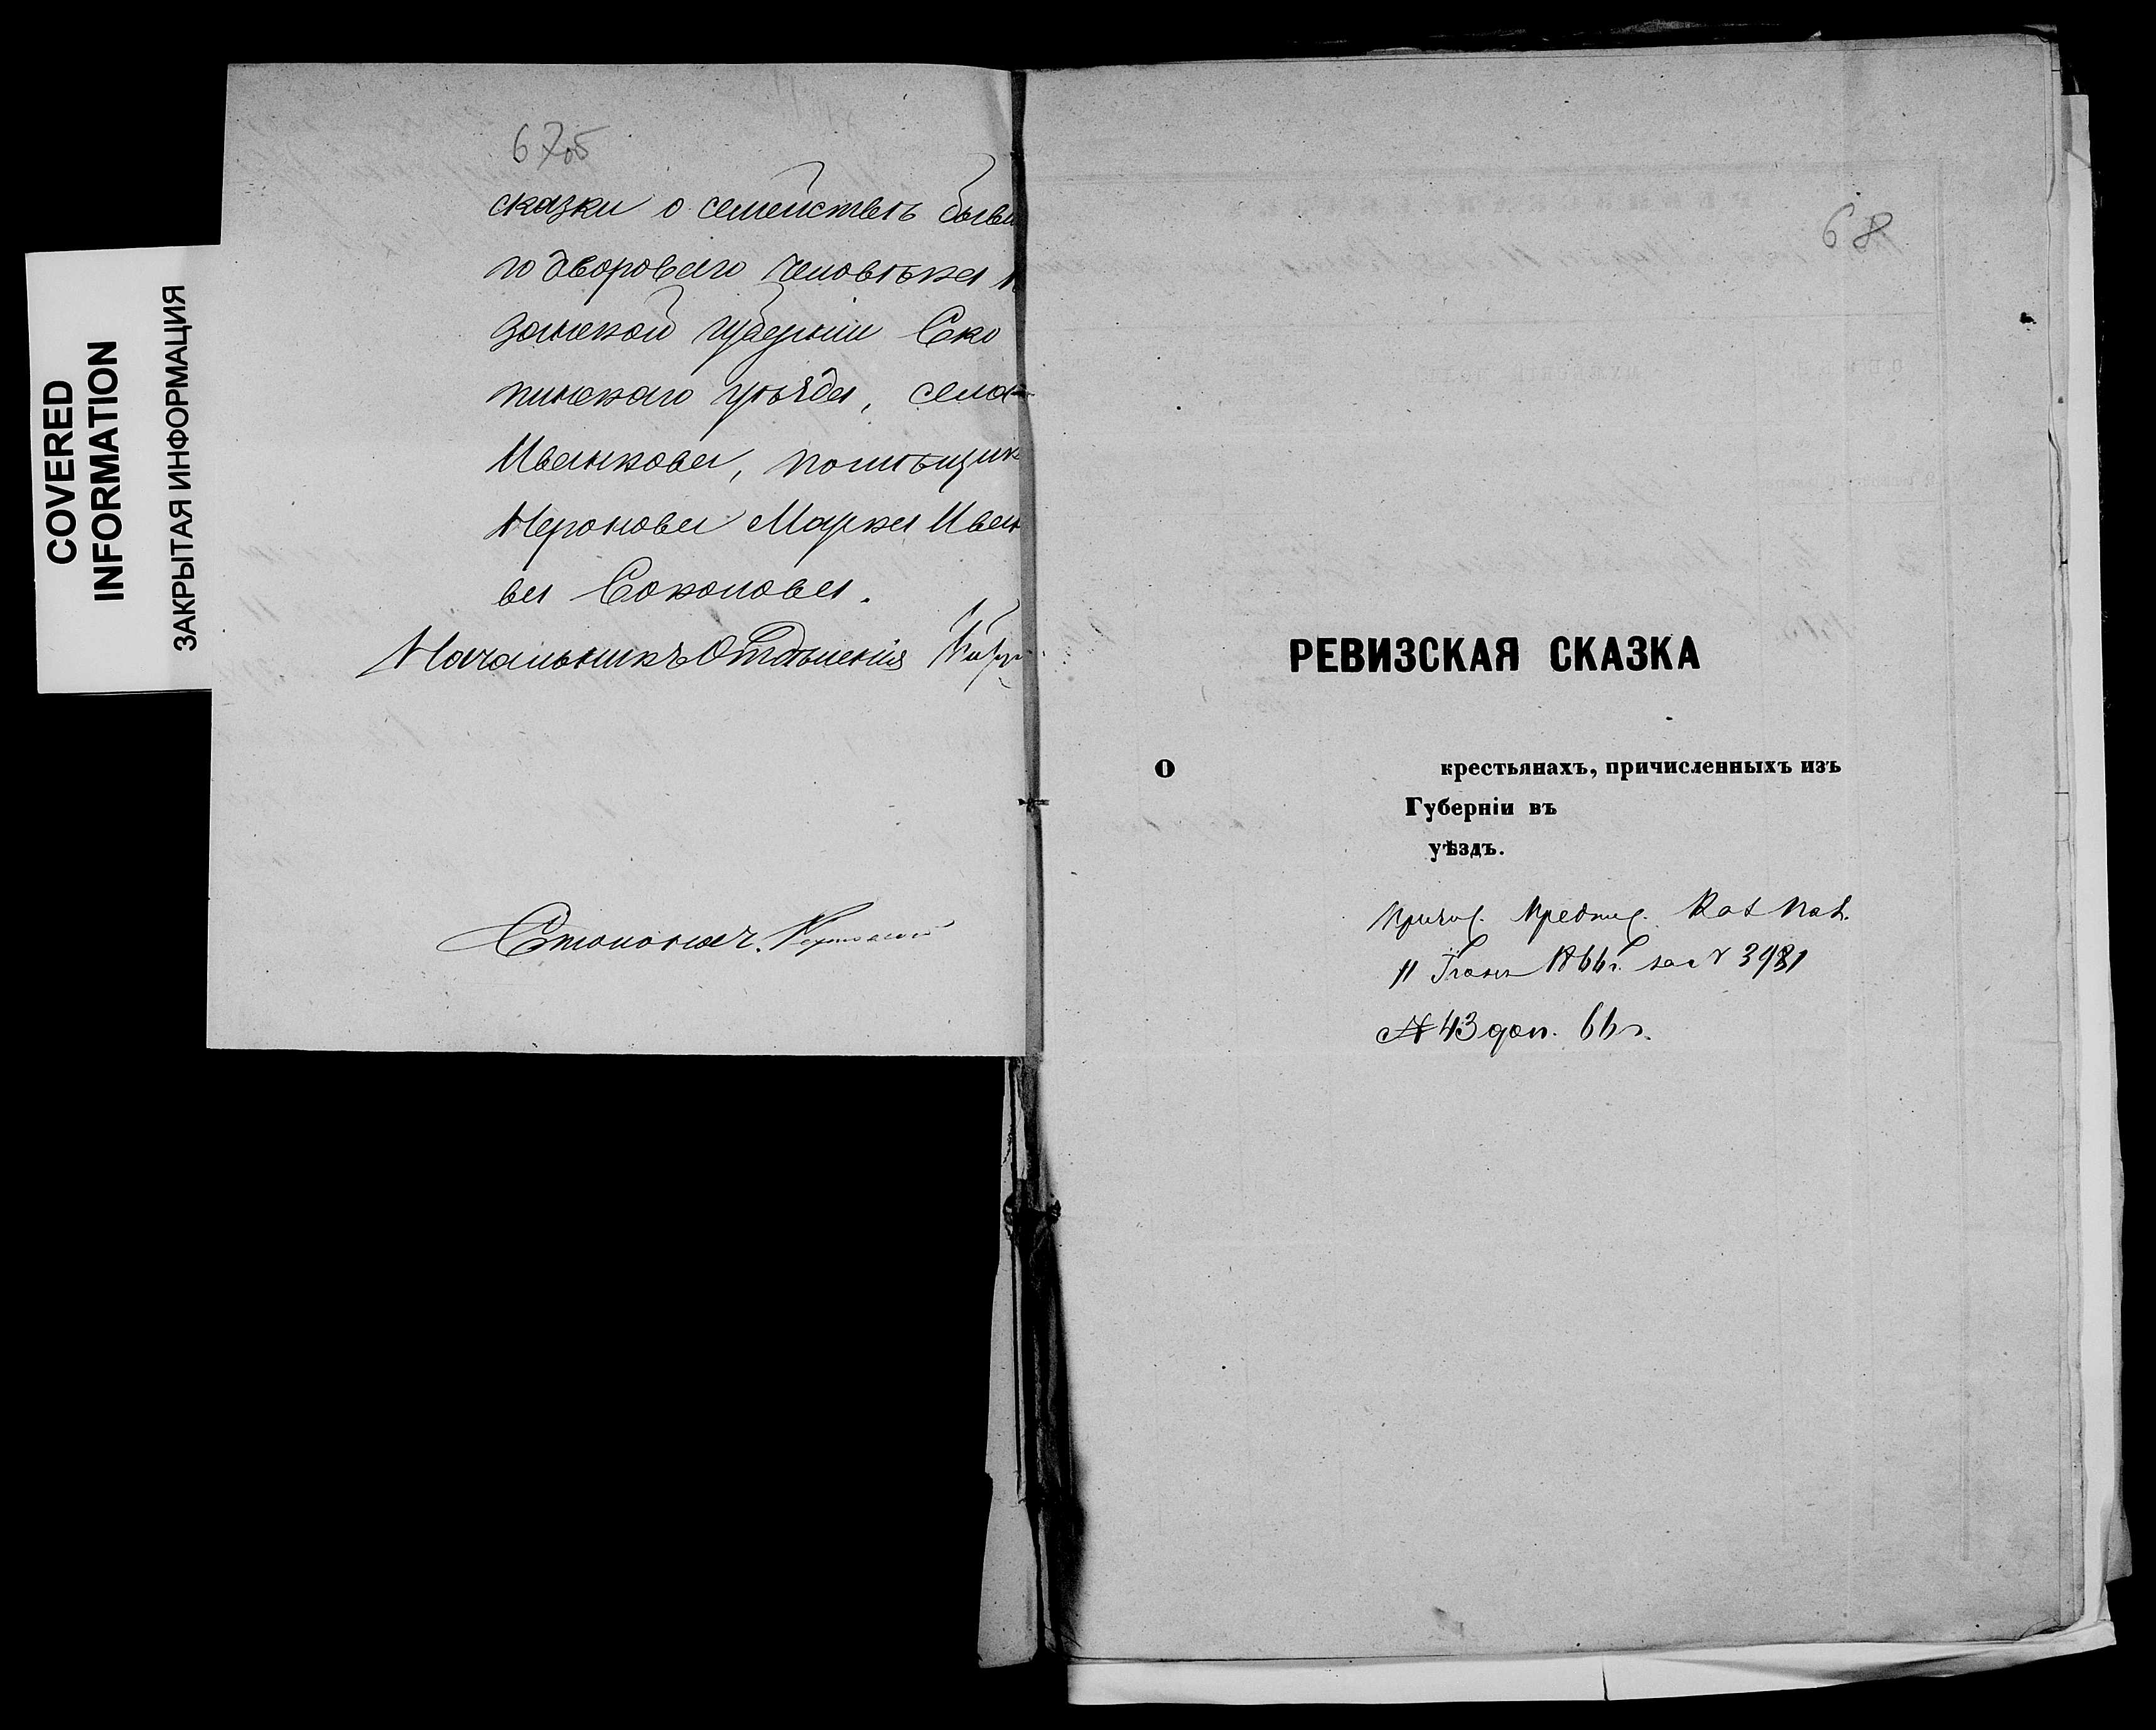 COVERED
INFORMATION
ЗАКРЫТАЯ ИНФОРМАЦИЯ
67об
сказки о семействѣ бывш
го двороваго человѣка
занской губерніи Ско
пинскаго уѣзда, села
Иванкова, помѣщик
Неронова Марка Иван
ва Соколова.
Начальникъ Отдѣленія
Столонач.
68
РЕВИЗСКАЯ СКАЗКА
О крестьянахъ, причисленныхъ изъ
Губерніи въ
уѣздъ.
Причис. Предпис. Каз Пал.
11 1866 г. за № 3981
№ 43 доп. 66 г.